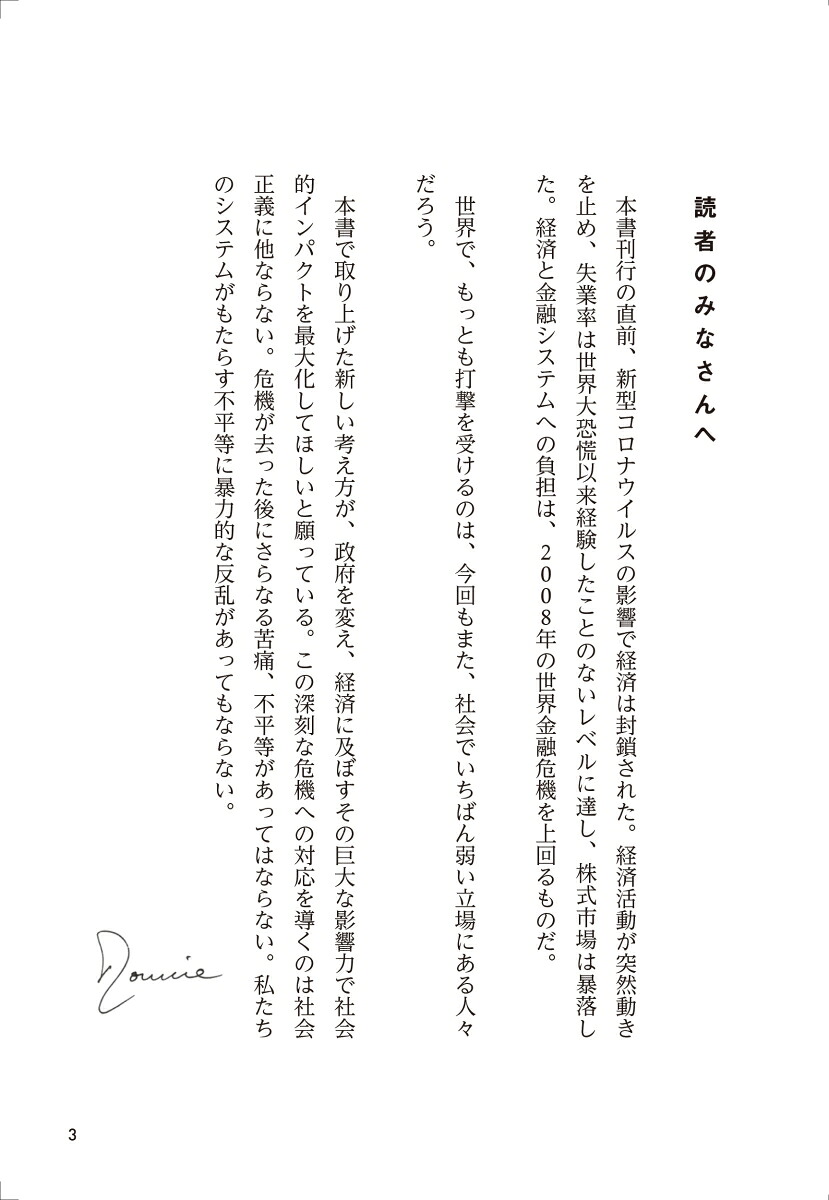 読者のみなさんへ
本書刊行の直前、新型コロナウイルスの影響で経済は封鎖された。経済活動が突然動き
を止め、失業率は世界大恐慌以来経験したことのないレベルに達し、株式市場は暴落し
た。経済と金融システムへの負担は、2008年の世界金融危機を上回るものだ。
世界で、もっとも打撃を受けるのは、今回もまた、社会でいちばん弱い立場にある人々
だろう。
本書で取り上げた新しい考え方が、政府を変え、経済に及ぼすその巨大な影響力で社会
的インパクトを最大化してほしいと願っている。この深刻な危機への対応を導くのは社会
正義に他ならない。危機が去った後にさらなる苦痛、不平等があってはならない。私たち
のシステムがもたらす不平等に暴力的な反乱があってもならない。
Ronnie
3